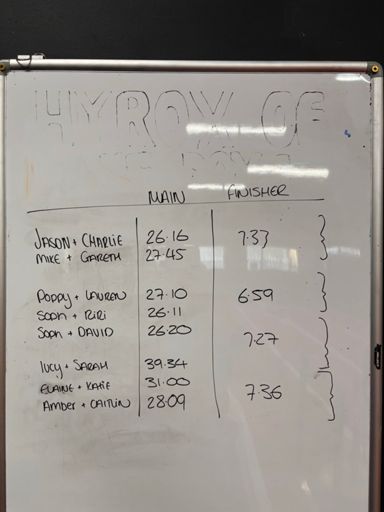 HYROX OF
MAIN FINISHER
JASON + CHARLIE 26.16 7.33
MIKE + GARETH 27.45
POPPY + LAUREN 27.10 6.59
SOPH + RIRI 26.11
SOPH + DAVID 26.20 7.27
LUCY + SARAH 39.34
ELAINE + KATIE 31.00 7.36
Amber + CAITLIN 28.09